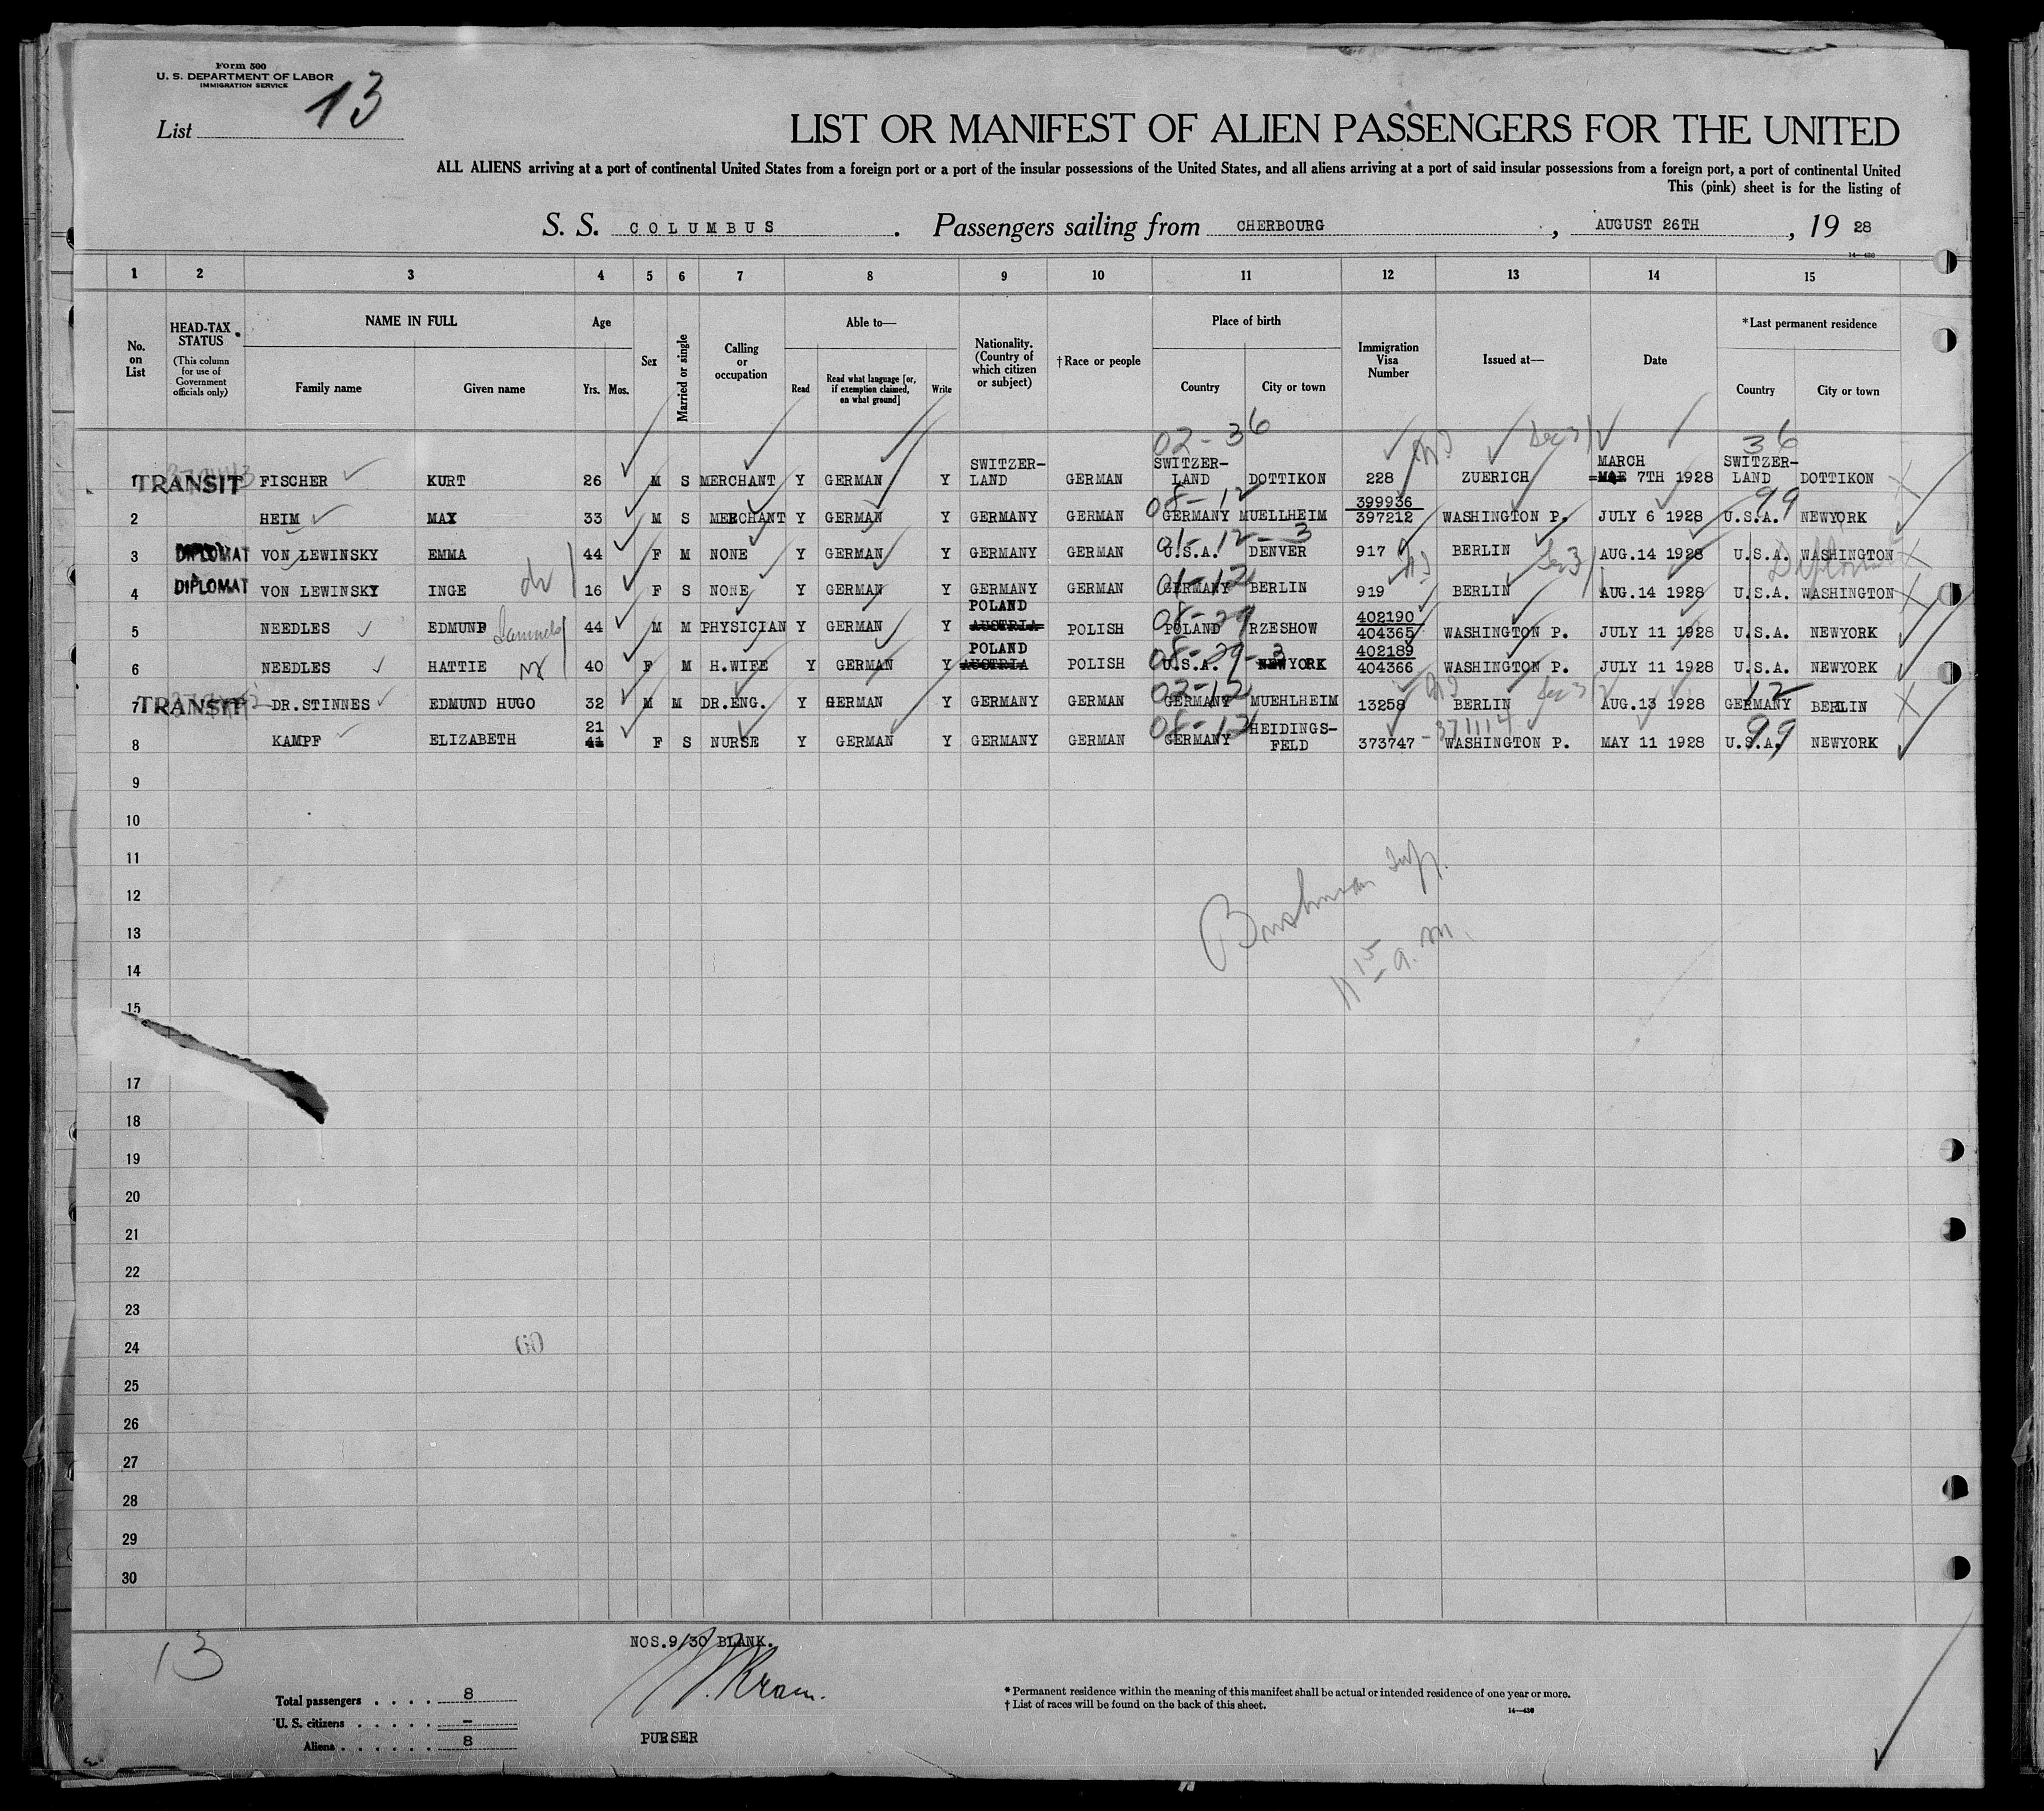 Form 500
U. S. DEPARTMENT OF LABOR
IMMIGRATION SERVICE
List 13
LIST OR MANIFEST OF ALIEN PASSENGERS FOR THE UNITED
ALL ALIENS arriving at a port of continental United States from a foreign port or a port of the insular possessions of the United States, and all aliens arriving at a port of said insular possessions from a foreign port, a port of continental United
This (pink) sheet is for the listing of
S. S. COLUMBUS. Passengers sailing from CHERBOURG, AUGUST 26TH, 19 28
14—430
1 2 3 4 5 6 7 8 9 10 11 12 13 14 15
No. on List
HEAD-TAX STATUS (This column for use of Government officials only)
NAME IN FULL
Family name Given name
Age
Yrs. Mos.
Sex
Married or single
Calling or occupation
Able to—
Read
Read what language [or, if exemption claimed, on what ground]
Write
Nationality. (Country of which citizen or subject)
†Race or people
Place of birth
Country City or town
Immigration Visa Number
Issued at—
Date
*Last permanent residence
Country City or town
02-36 36
1 TRANSIT FISCHER KURT 26 M S MERCHANT Y GERMAN Y SWITZER-LAND GERMAN SWITZER-LAND DOTTIKON 228 ZUERICH MARCH 7TH 1928 SWITZER-LAND DOTTIKON
08-12 99
2 HEIM MAX 33 M S MERCHANT Y GERMAN Y GERMANY GERMAN GERMANY MUELLHEIM 399936 397212 WASHINGTON P. JULY 6 1928 U.S.A. NEWYORK
01-12-3
3 DIPLOMAT VON LEWINSKY EMMA 44 F M NONE Y GERMAN Y GERMANY GERMAN U.S.A. DENVER 917 BERLIN AUG.14 1928 U.S.A. WASHINGTON
01-12 Diplomat
4 DIPLOMAT VON LEWINSKY INGE 16 F S NONE Y GERMAN Y GERMANY GERMAN GERMANY BERLIN 919 BERLIN AUG.14 1928 U.S.A. WASHINGTON
08-29
5 NEEDLES EDMUND 44 M M PHYSICIAN Y GERMAN Y POLAND AUSTRIA POLISH POLAND RZESHOW 402190 404365 WASHINGTON P. JULY 11 1928 U.S.A. NEWYORK
08-29-3
6 NEEDLES HATTIE 40 F M H.WIFE Y GERMAN Y POLAND AUSTRIA POLISH U.S.A. NEWYORK 402189 404366 WASHINGTON P. JULY 11 1928 U.S.A. NEWYORK
02-12 12
7 TRANSIT DR.STINNES EDMUND HUGO 32 M M DR.ENG. Y GERMAN Y GERMANY GERMAN GERMANY MUEHLHEIM 13258 BERLIN AUG.13 1928 GERMANY BERLIN
08-12 371114 99
8 KAMPF ELIZABETH 21 41 F S NURSE Y GERMAN Y GERMANY GERMAN GERMANY HEIDINGS-FELD 373747 WASHINGTON P. MAY 11 1928 U.S.A. NEWYORK
9
10
11
12
13
14
15
17
18
19
20
21
22
23
24
25
26
27
28
29
30
Bushman Insp.
11 15 a.m.
60
13
NOS.9/30 BLANK.
PURSER
Total passengers . . . . 8
U. S. citizens . . . . . –
Aliens . . . . . . 8
* Permanent residence within the meaning of this manifest shall be actual or intended residence of one year or more.
† List of races will be found on the back of this sheet.
14—430